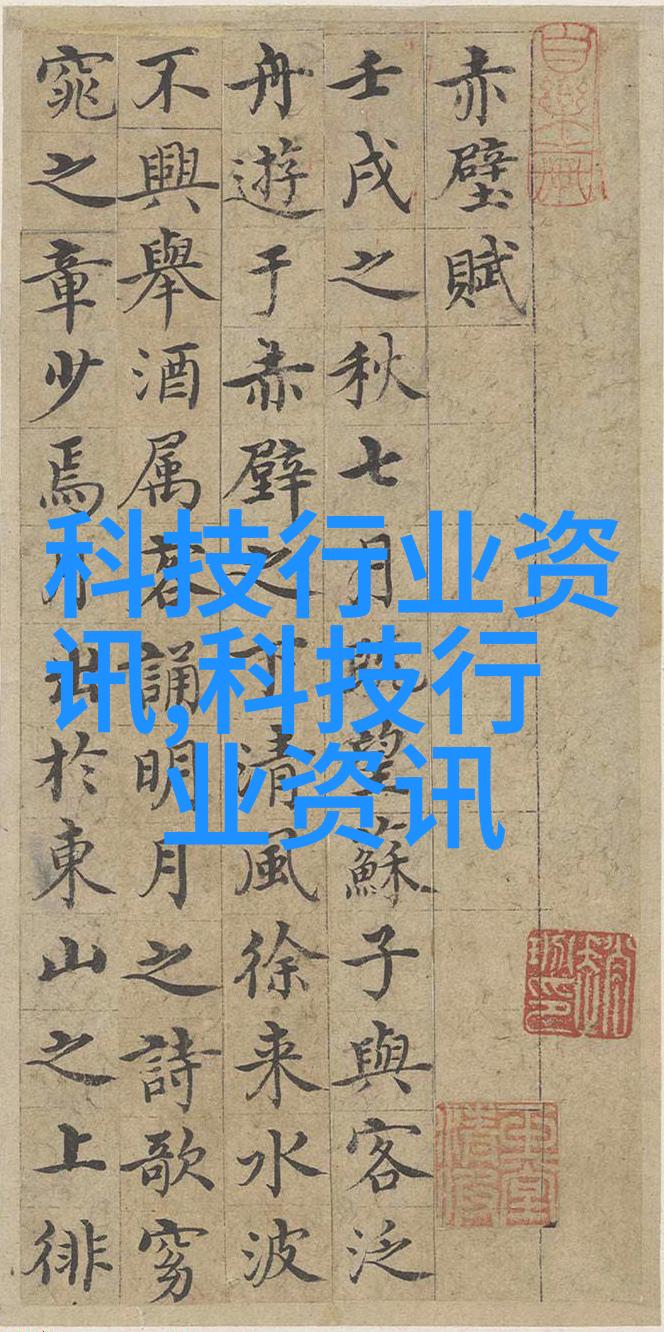 赤壁賦
壬戌之秋七月既望蘇子與客泛
舟遊于赤壁之下清風徐来水波
不興舉酒属客誦明月之詩歌窈
窕之章少焉月出於東山之上徘
科技行业资
讯,科技行
业资讯